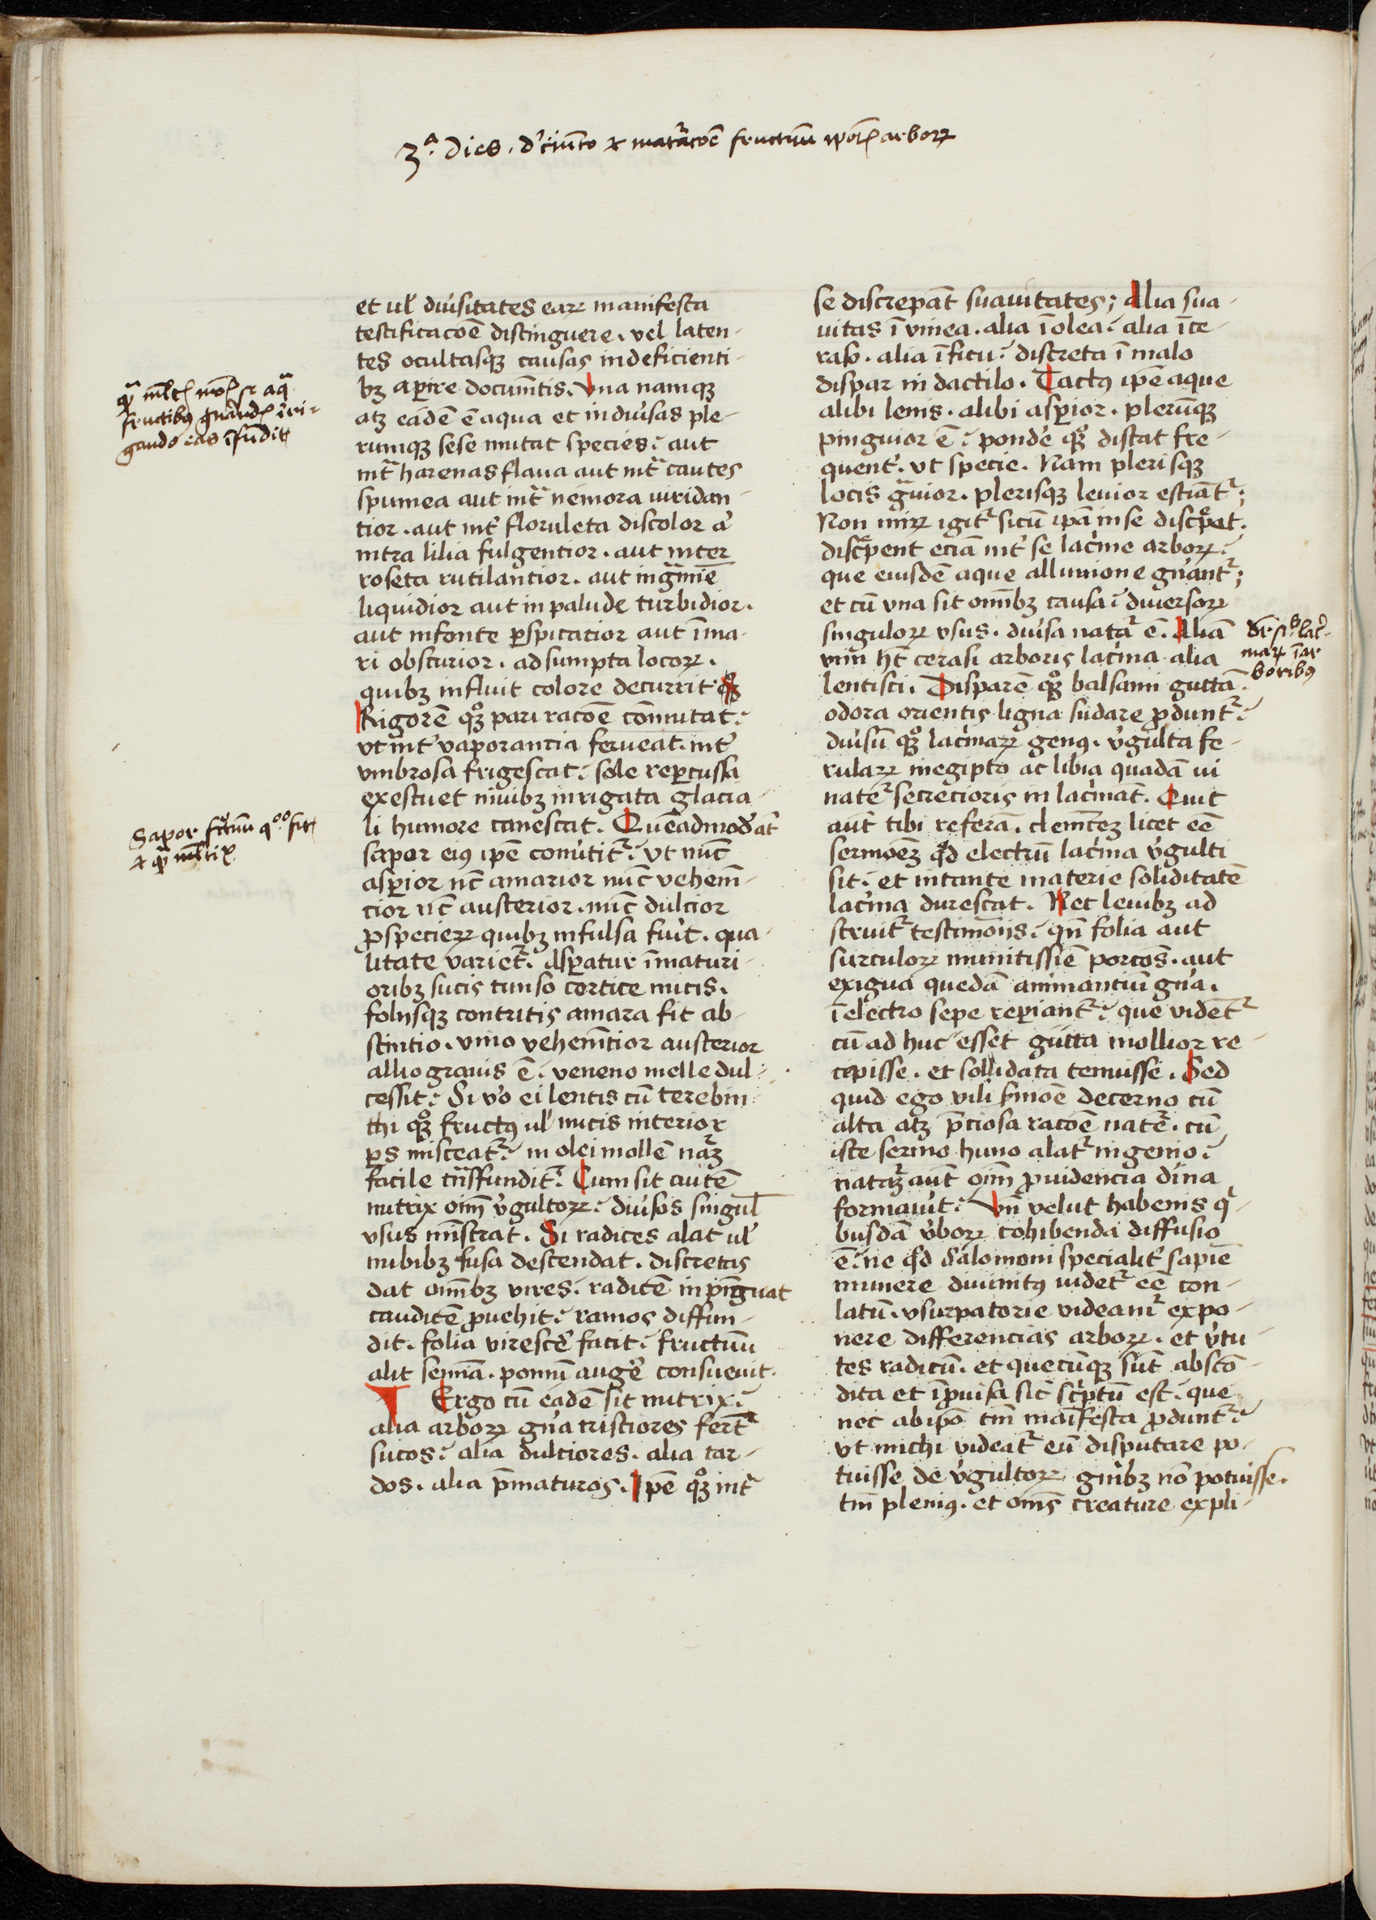 3ᵃ. Dies. fructuum arboꝝ
et ul' diu'sitates eaꝝ manifesta
testificacōe distinguere. vel laten-
tes ocultasqꝫ causas indeficienti-
bꝫ aꝑire docum̄tis. Vna namqꝫ
atꝫ eadē ē aqua et in diu'sas ple-
rumqꝫ sese mutat species: aut
int' harenas flaua aut int' cautes
spumea aut int' nemora uiridan-
tior. aut int' floruleta discolor a'
intra lilia fulgentior. aut inter
roseta rutilantior. aut in gͣmie
liquidior aut in palude turbidior.
aut in fonte ꝑspicatior aut ī ma-
ri obscurior. adsumpta locoꝝ.
quibꝫ influit colore decurrit
Rigorē qꝫ pari racōe cōmutat:
vt int' vaporantia ferueat. int'
vmbrosa frigescat: sole reꝑcussa
exestuet niuibꝫ inrigata glacia-
li humore canescat. Quēadmod' at'
sapor eiꝰ ipē comutit': vt nūc
asꝑior nc̄ amarior nūc vehem̄-
cior nc̄ austerior. nūc dulcior
ꝓ specieꝝ quibꝫ infulsa fu'it. qua-
litate variet': Asꝑatur īmaturi-
oribꝫ sucis tunso cortice nucis.
folijsqꝫ contritis amara fit ab-
scintio. vino vehem̄tior austerior
allio grauis ē: veneno melle dul-
cessit: Si v'o ei lentis cū terebin-
thi qꝫ fructꝰ ul' nucis interior
ꝑs misceat': in olei mollē naꝫ
facile tn̄sfundit': Cum sit autē
nutrix oīm v'gultoꝝ: diu'sos singul'
vsus ministrat. Si radices alat ul'
nubibꝫ fusa descendat. discretas
dat om̄ibꝫ vires: radicē in pīguat
caudicē ꝓuehit: ramos diffun-
dit. folia virescē' facit: fructuū
alit semīa. pomū auge' consueuit.
Ergo cū eadē sit nutrix:
alia arboꝝ gn̄a tristiores fert'
sucos: alia dulciores. alia tar-
dos. alia p̄maturos. Ipē qꝫ int'
se discrepāt suauitates; Alia sua-
uitas ī vinea. alia ī olea: alia ī ce-
raso. alia ī ficu: discreta ī malo
dispar in dactilo. Tactꝰ ipē aque
alibi lenis. alibi asꝑior. plerūqꝫ
pinguior ē: ponde' qꝫ distat fre-
quent'. vt specie. Nam plerisqꝫ
locis gͣuior. plerisqꝫ leuior estīat';
Non miꝝ igit' si cū ipā in se discͤpat.
discͤpent eciā int' se lac'me arboꝝ:
que eiusdē aque alluuione gn̄ant';
et cū vna sit om̄ibꝫ causa: diuersoꝝ
singuloꝝ vsus. diu'sa natͣ ē. Aliā
vim ht̄ cerasi arboris lac'ma alia
lentisci. Disparē qꝫ balsami guttā
odora orientis ligna sudare ꝓdunt':
diu'sū qꝫ lac'maꝝ genꝰ. v'gulta fe-
rulaꝝ in egipto ac libia quadā ui
nate' secrecioris in lac'mat. Quit
aut̄ tibi referā. licet eē
sermoēꝫ qd electrū lac'ma v'gulti
sit: et in tante materie soliditatē
lac'ma durescat. Nec leuibꝫ ad
struit' testimōijs: qn̄ folia aut
surculoꝝ munitissīe porcōs. aut
exigua quedā animantiū gn̄a.
ī electro sepe reꝑiant': que vidēt'
cū ad huc esset gutta mollior re-
cepisse. et sollidata tenuisse. Sed
quid ego vili s'mōe decerno cū
alta atꝫ p̄ciosa racōe natē'. cū
iste sermo huno alat' ingenio:
natͣꝫ aut̄ oīm ꝓuidencia diīna
formau'it: Vn̄ velut habenis qͥ-
busdā v'boꝝ cohibenda diffusio
ē: ne qd Salomoni specialit' sapīe
munere diuinitꝰ uidet' eē con-
latū. vsurpatorie videam' expo-
nere differencias arboꝝ. et v'tu-
tes radicū. et quecūqꝫ sūt absco-
dita et īpuisa sic sc'ptū est: que
nec ab ipo tm̄ maīfesta ꝓdunt':
vt michi videat' eū disputare po-
tuisse de v'gultoꝝ gn̄ibꝫ nō potuisse.
tm̄ pleniꝰ. et oms creature expli-
fructibus
gando eas īfundit
Sapor fructuū qᵒ fit
lac'-
maꝝ ī ar
boribꝰ